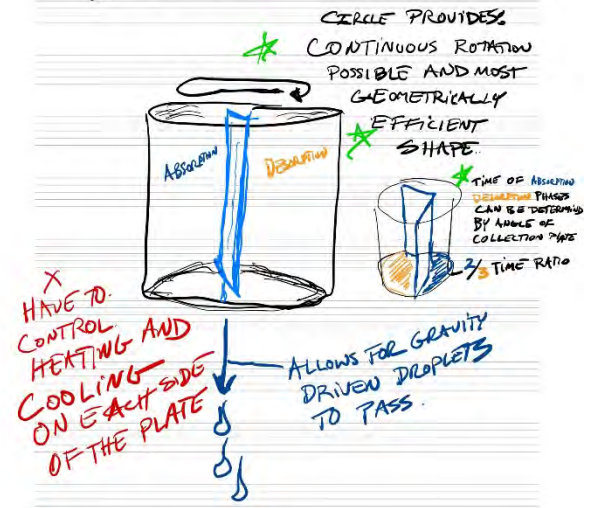 CIRCLE PROVIDES:
CONTINUOUS ROTATION
POSSIBLE AND MOST
GEOMETRICALLY
EFFICIENT
SHAPE.
ABSORPTION
DESORPTION
TIME OF ABSORPTION
DESORPTION PHASES
CAN BE DETERMINED
BY ANGLE OF
COLLECTION PLATE
2/3 TIME RATIO
X
HAVE TO
CONTROL
HEATING AND
COOLING
ON EACH SIDE
OF THE PLATE
ALLOWS FOR GRAVITY
DRIVEN DROPLETS
TO PASS.